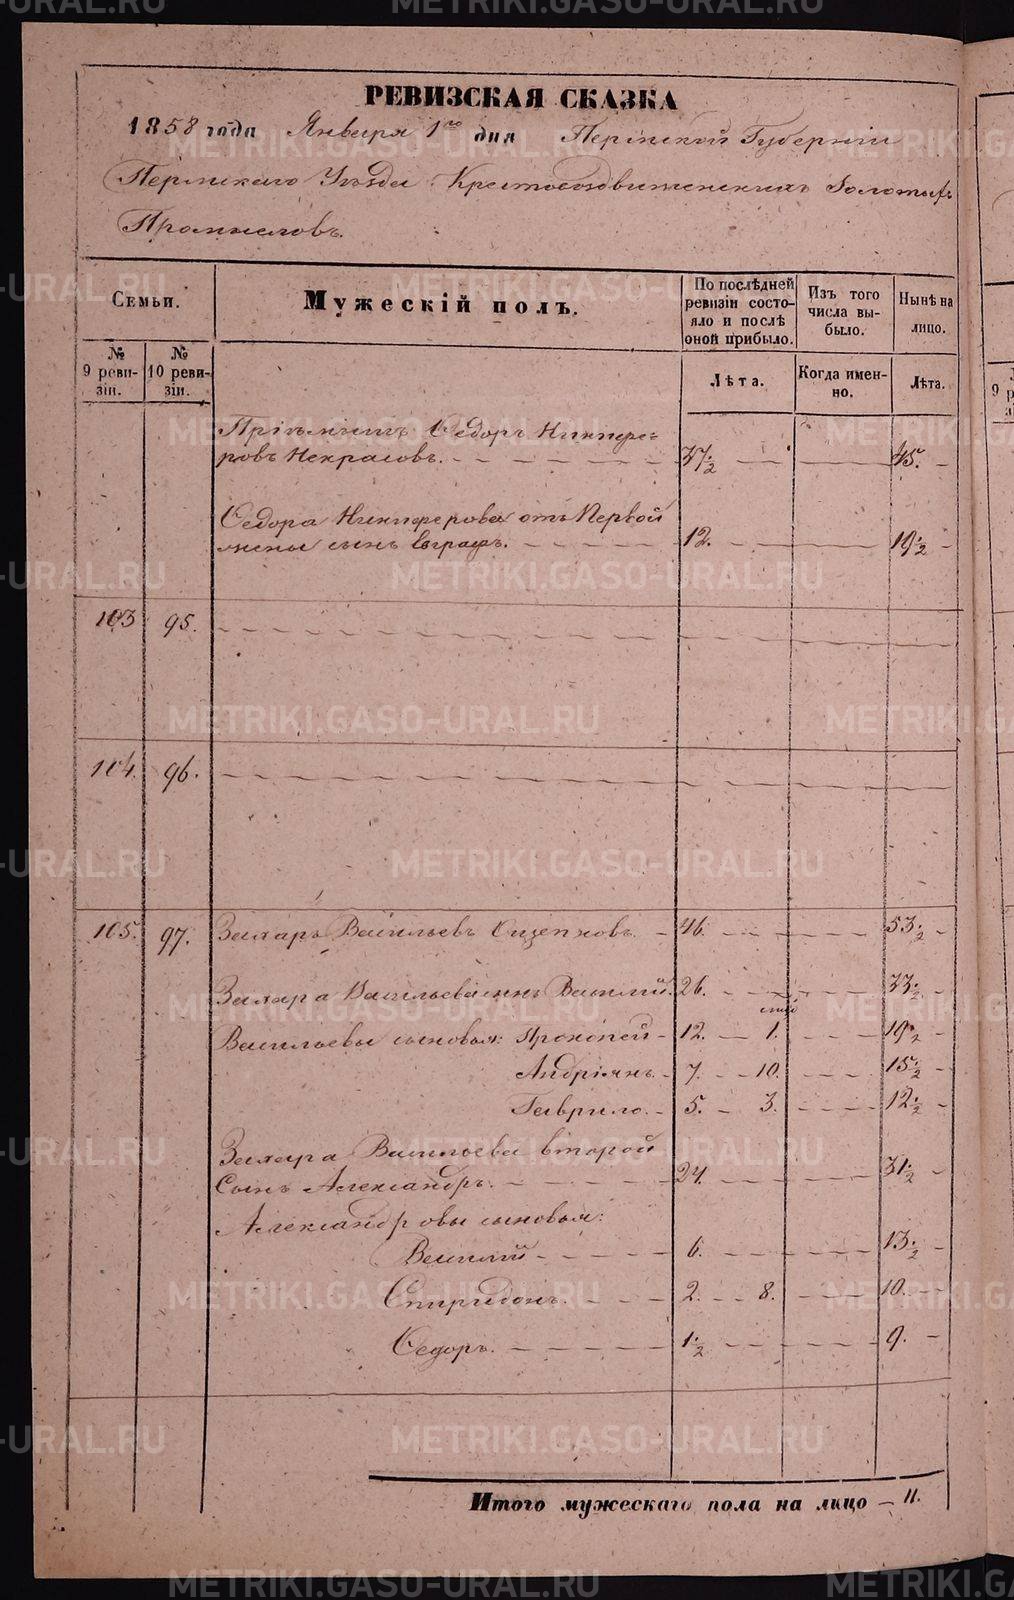 РЕВИЗСКАЯ СКАЗКА
1858 года Января 1го дня Пермской Губерніи
Пермскаго Уѣзда Крестовоздвиженскихъ Золотыхъ
Промысловъ.
Семьи.
Мужескій полъ.
По послѣдней ревизіи состояло и послѣ оной прибыло.
Изъ того числа выбыло.
Нынѣ на лицо.
№ 9 ревизіи.
№ 10 ревизіи.
Лѣта.
Когда именно.
Лѣта.
Пріемышъ Ѳедоръ Никифоровъ Некрасовъ. 37½ 45.
Ѳедора Никифорова отъ Первой
жены сынъ Евграфъ. 12. 19½
103 95.
104. 96.
105. 97. Захаръ Васильевъ Ощепковъ. 46. 53½
Захара Васильева сынъ Василий. 26. 33½
мѣс
Васильевы сыновья: Прокопей 12. 1. 19½
Андріянъ. 7. 10. 15½
Гаврило. 5. 3. 12½
Захара Васильева второй
Сынъ Александръ. 24. 31½
Александровы сыновья:
Василий 6. 13½
Спиридонъ. 2. 8. 10.
Ѳедоръ. 1½ 9.
Итого мужескаго пола на лицо 11.
METRIKI.GASO-URAL.RU